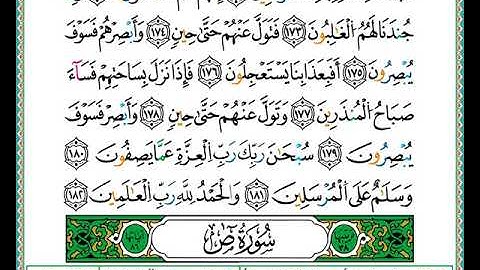 جُندَنَا لَهُمُ الْغَالِبُونَ ١٧٣ فَتَوَلَّ عَنْهُمْ حَتَّىٰ حِينٍ ١٧٤ وَأَبْصِرْهُمْ فَسَوْفَ
يُبْصِرُونَ ١٧٥ أَفَبِعَذَابِنَا يَسْتَعْجِلُونَ ١٧٦ فَإِذَا نَزَلَ بِسَاحَتِهِمْ فَسَآءَ
صَبَاحُ الْمُنذَرِينَ ١٧٧ وَتَوَلَّ عَنْهُمْ حَتَّىٰ حِينٍ ١٧٨ وَأَبْصِرْ فَسَوْفَ
يُبْصِرُونَ ١٧٩ سُبْحَانَ رَبِّكَ رَبِّ الْعِزَّةِ عَمَّا يَصِفُونَ ١٨٠
وَسَلَامٌ عَلَى الْمُرْسَلِينَ ١٨١ وَالْحَمْدُ لِلَّهِ رَبِّ الْعَالَمِينَ ١٨٢
سُورَةُ صٓ